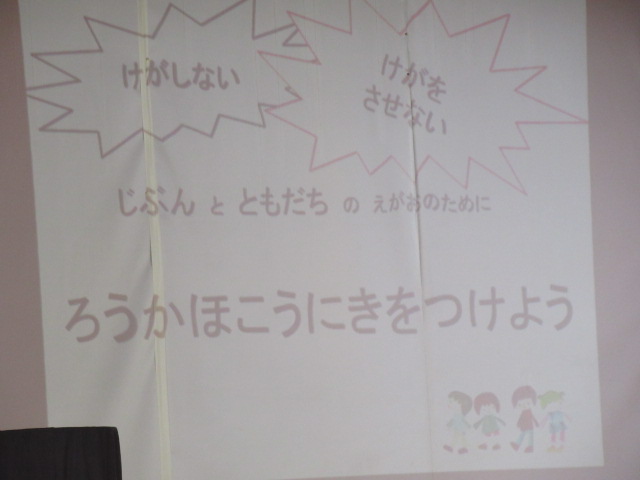 けがしない
けがを
させない
じぶん と ともだち の えがおのために
ろうかほこうにきをつけよう